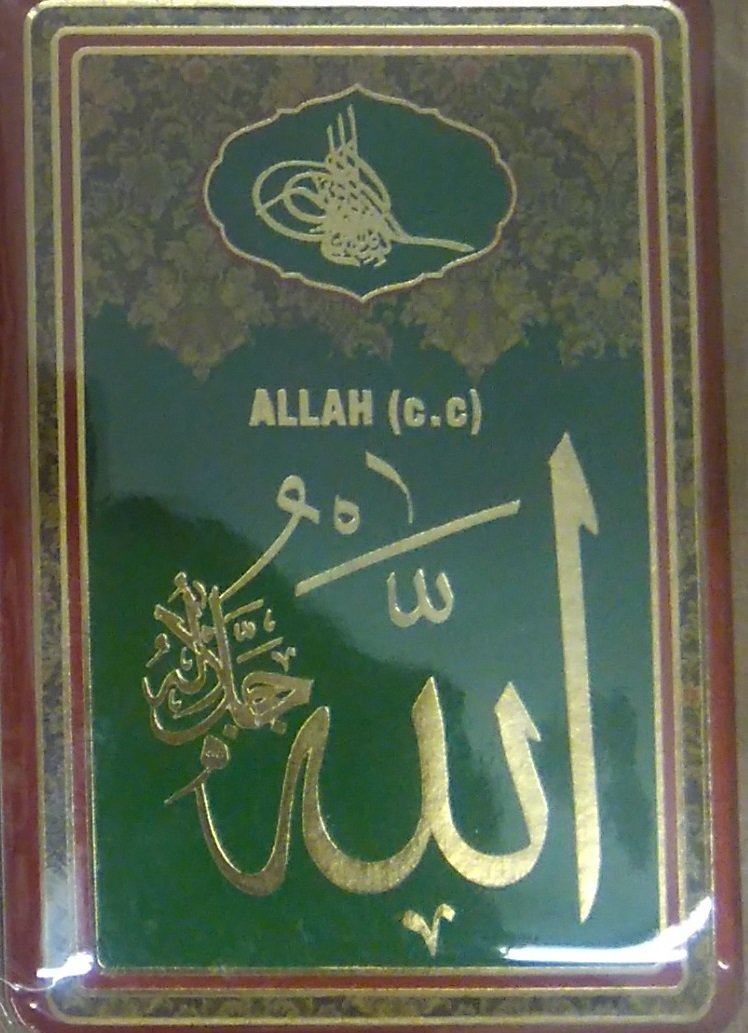 ALLAH (c.c)
الله
جل جلاله